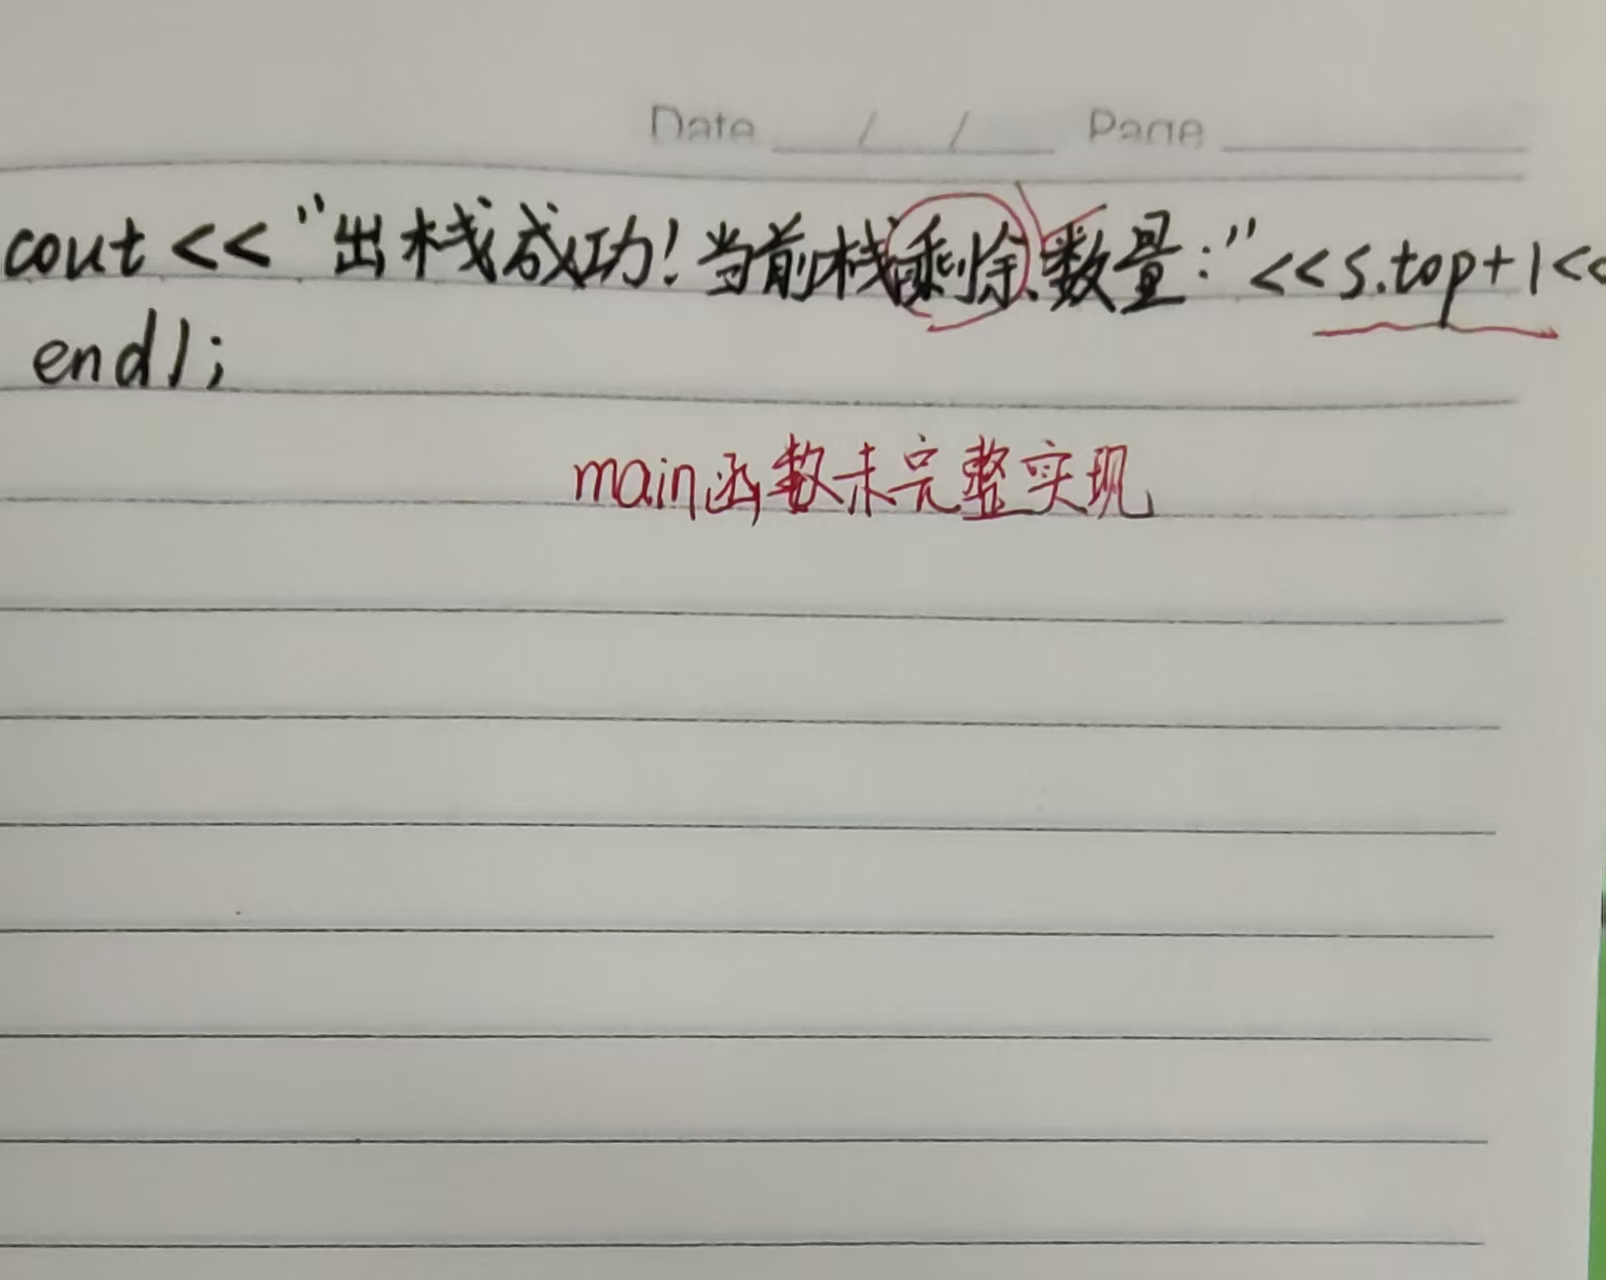 Date / / Page
cout << "出栈成功!当前栈剩除数量:"<<s.top+1<<
endl;
main函数未完整实现